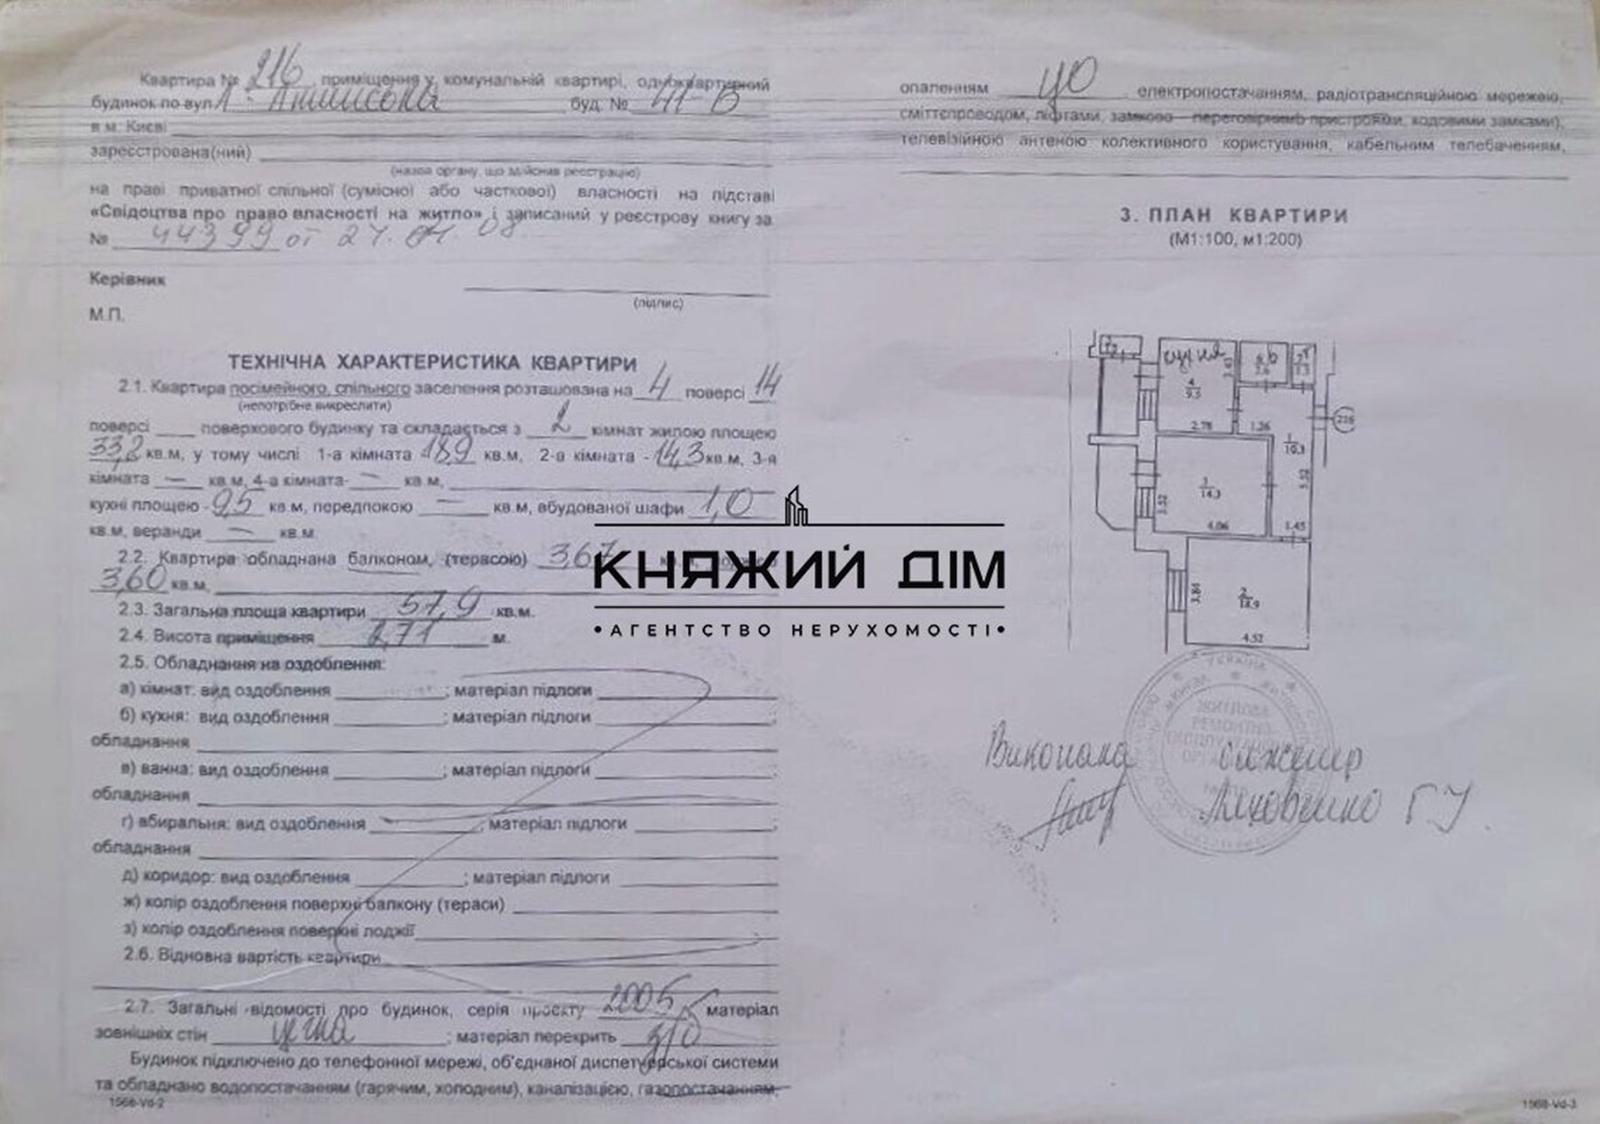 Квартира № 216, приміщення у комунальній квартирі, одноквартирний
будинок по вул буд. № 41-В
в м. Києві
зареєстрована(ний)
(назва органу, що здійснив реєстрацію)
на праві приватної спільної (сумісної або часткової) власності на підставі
«Свідоцтва про право власності на житло» і записаний у реєстрову книгу за
№ 44399 от
Керівник
(підпис)
М.П.
ТЕХНІЧНА ХАРАКТЕРИСТИКА КВАРТИРИ
2.1. Квартира посімейного, спільного заселення розташована на 4 поверсі 14
(непотрібне викреслити)
поверсі поверхового будинку та складається з 2 кімнат жилою площею
33,2 кв.м, у тому числі 1-а кімната 18,9 кв.м, 2-а кімната - 14,3 кв.м, 3-я
кімната — кв.м, 4-а кімната- — кв.м,
кухні площею - 9,5 кв.м, передпокою — кв.м, вбудованої шафи 1,0
кв.м, веранди — кв.м.
2.2. Квартира обладнана балконом, (терасою) 3,67 кв.м,
3,60 кв.м,
2.3. Загальна площа квартири 57,9 кв.м.
2.4. Висота приміщення 2,71 м.
2.5. Обладнання на оздоблення:
а) кімнат: вид оздоблення ; матеріал підлоги
б) кухня: вид оздоблення ; матеріал підлоги ;
обладнання
в) ванна: вид оздоблення ; матеріал підлоги ;
обладнання
г) вбиральня: вид оздоблення ; матеріал підлоги ;
обладнання
д) коридор: вид оздоблення ; матеріал підлоги
ж) колір оздоблення поверхні балкону (тераси)
з) колір оздоблення поверхні лоджії
2.6. Відновна вартість квартири
2.7. Загальні відомості про будинок, серія проекту 2005, матеріал
зовнішніх стін цегла ; матеріал перекрить з/б
Будинок підключено до телефонної мережі, об'єднаної диспетчерської системи
та обладнано водопостачанням (гарячим, холодним), каналізацією, газопостачанням,
1568-Vd-2
опаленням ЦО електропостачанням, радіотрансляційною мережею,
сміттєпроводом, ліфтами, замково - переговірними пристроями, кодовими замками),
телевізійною антеною колективного користування, кабельним телебаченням,
3. ПЛАН КВАРТИРИ
(М1:100, м1:200)
кухня
4
9.5
2.78
1.26
216
1
10.3
3
14.3
3.52
4.06
5.52
1.45
2
18.9
3.84
4.52
КНЯЖИЙ ДІМ
•АГЕНТСТВО НЕРУХОМОСТІ•
УКРАЇНА
Виконала інженер
Г У
1568-Vd-3